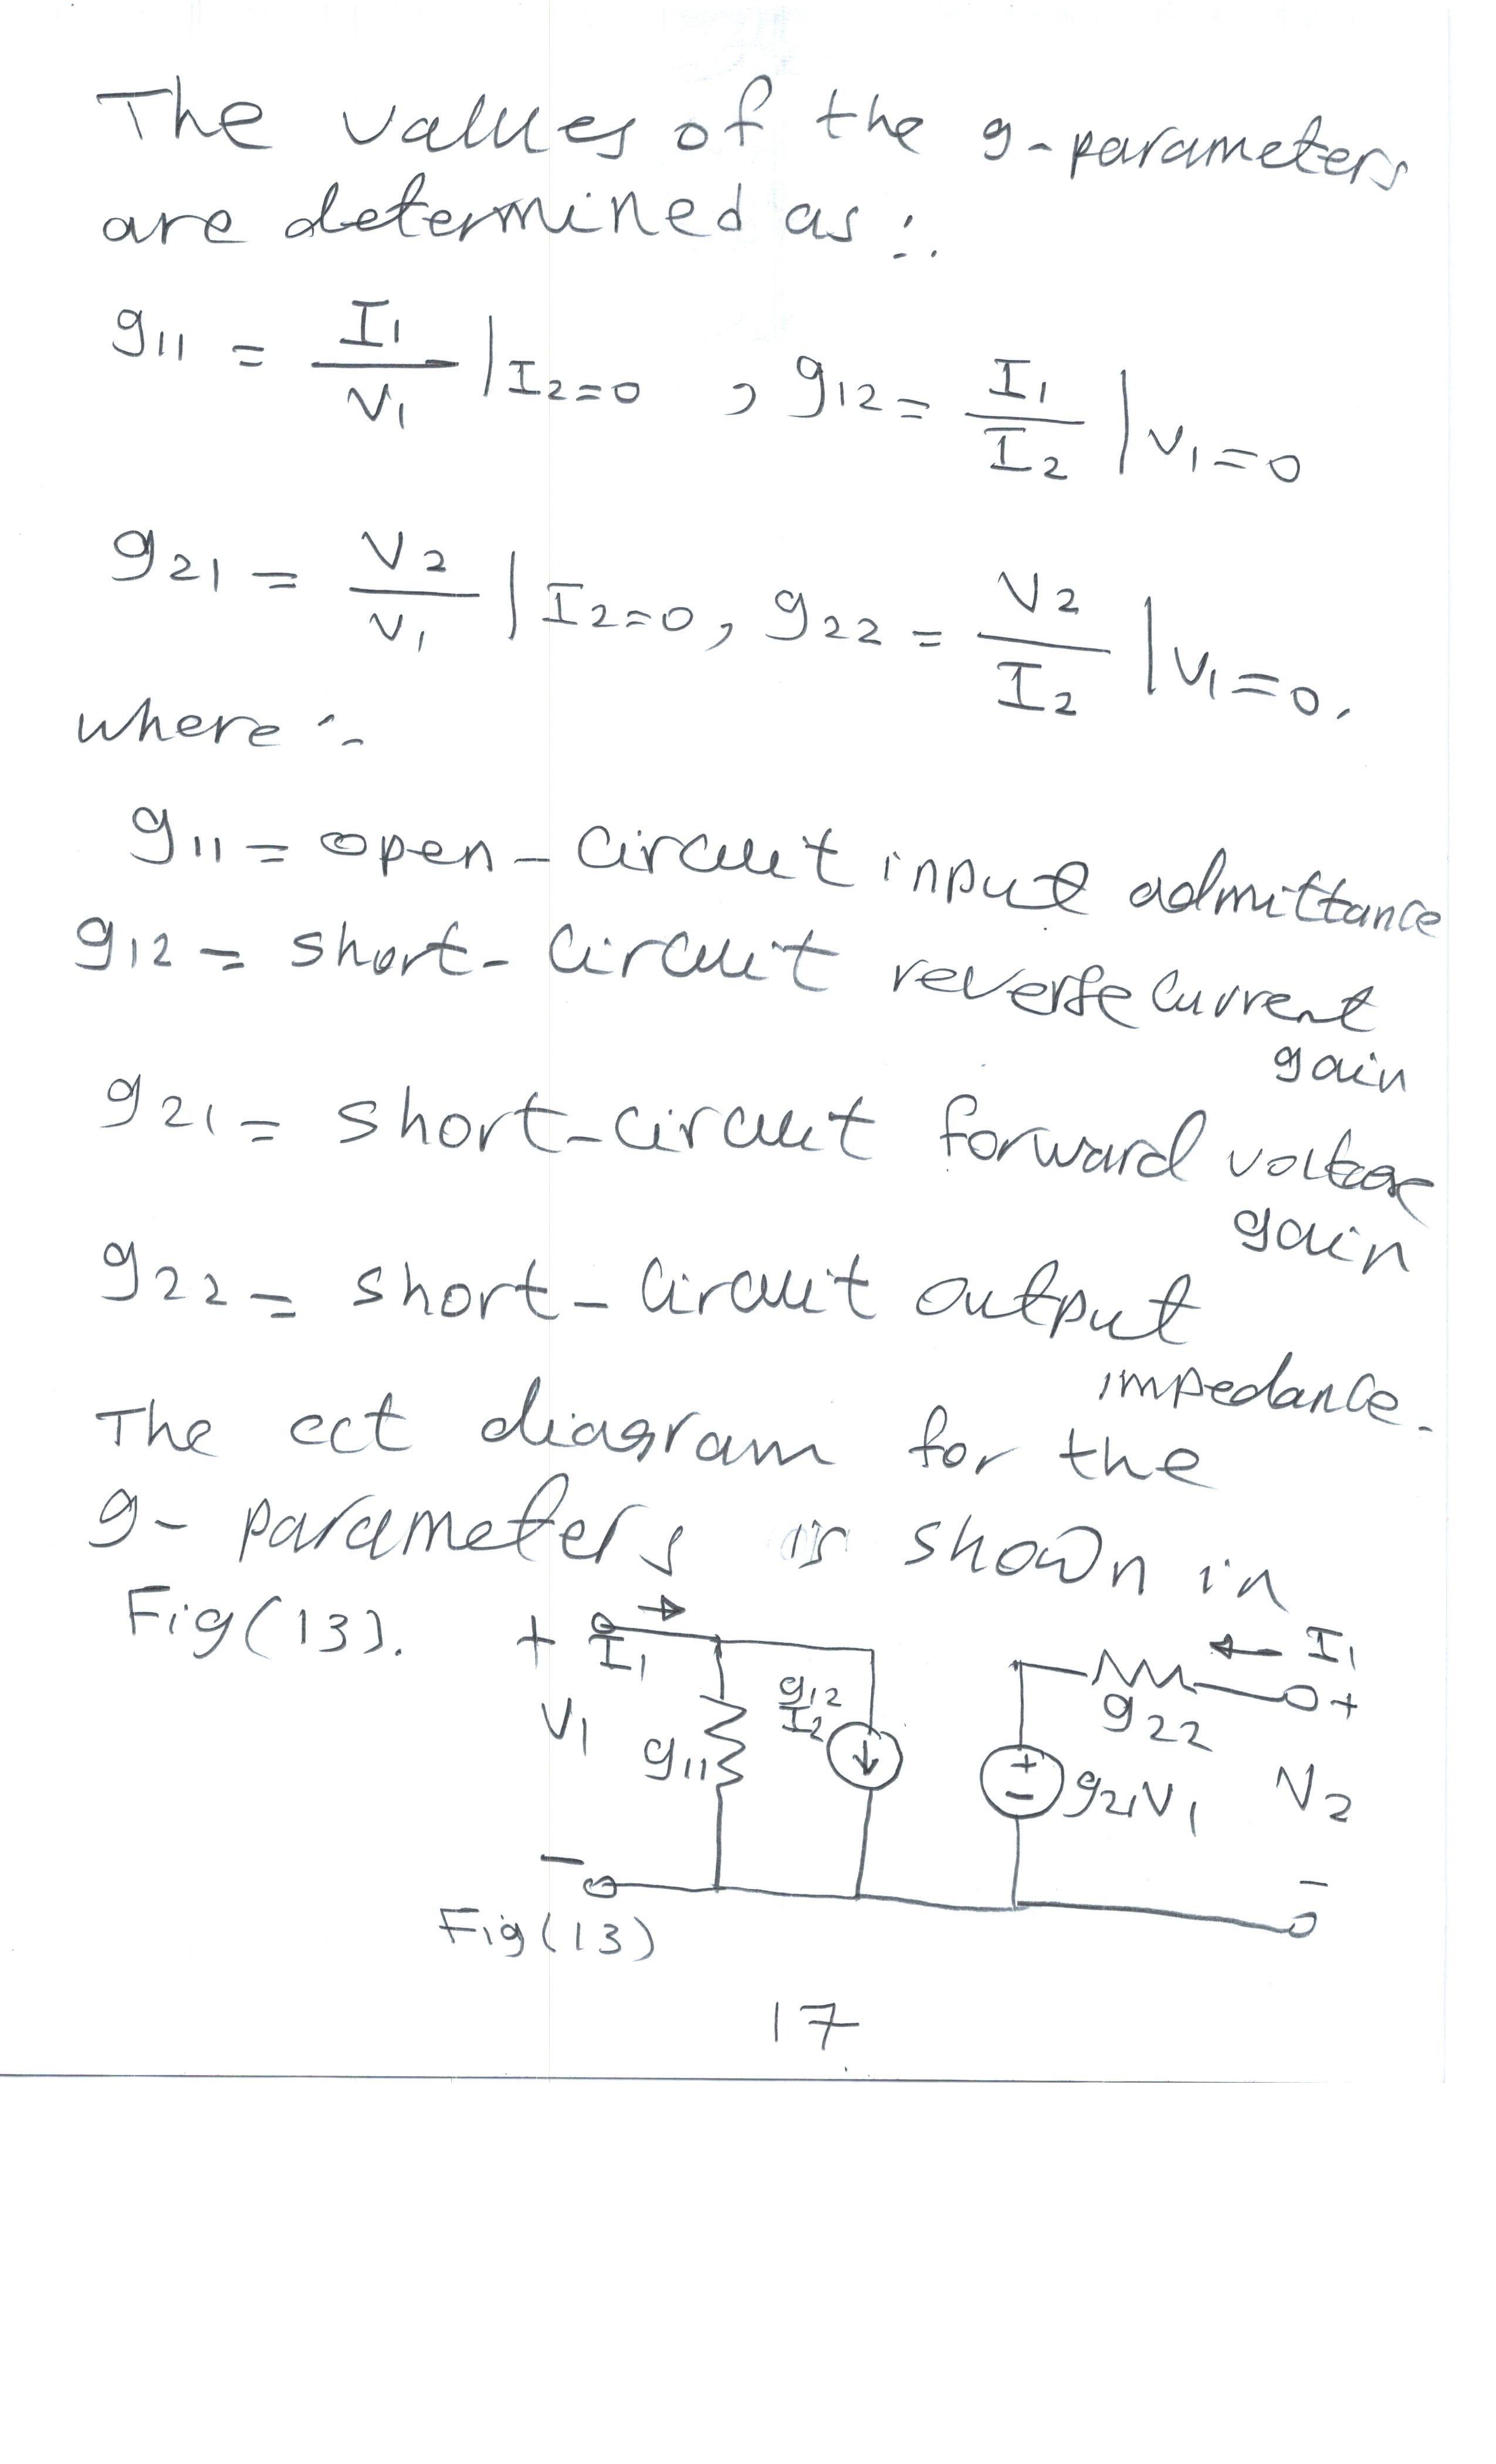 The values of the g-parameters
are determined as :.
g11 = I1/V1 |I2=0 , g12 = I1/I2 |V1=0
g21 = V2/V1 |I2=0, g22 = V2/I2 |V1=0.
where :-
g11 = open-circuit input admittance
g12 = short-circuit reverse current
gain
g21 = short-circuit forward voltage
gain
g22 = short-circuit output
impedance.
The cct diagram for the
g-parameters is shown in
Fig(13).
+ I1 → g12 I2 ← I1
V1 g11 g22 +
+ - g21V1 V2
- -
Fig(13)
17